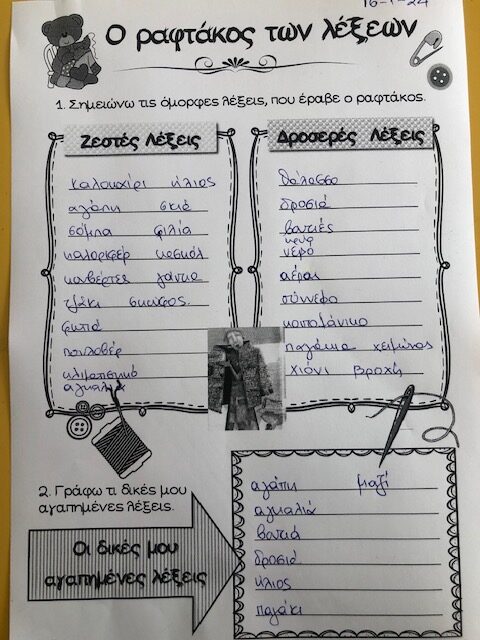 16-1-24
Ο ραφτάκος των λέξεων
1. Σημειώνω τις όμορφες λέξεις, που έραβε ο ραφτάκος.
Ζεστές λέξεις
καλοκαίρι ήλιος
αγάπη σκιά
σόμπα φιλία
καλοριφέρ κασκόλ
κουβέρτες γάντια
τζάκι σκούφος
φωτιά
πουλοβέρ
κλιματιστικό
αγκαλιά
Δροσερές λέξεις
θάλασσα
δροσιά
βουτιές
κρύο
νερό
αέρας
σύννεφο
παγάκια χειμώνας
χιόνι βροχή
2. Γράφω τι δικές μου
αγαπημένες λέξεις.
Οι δικές μου
αγαπημένες λέξεις
αγάπη μαζί
αγκαλιά
βουτιά
δροσιά
ήλιος
παγάκι